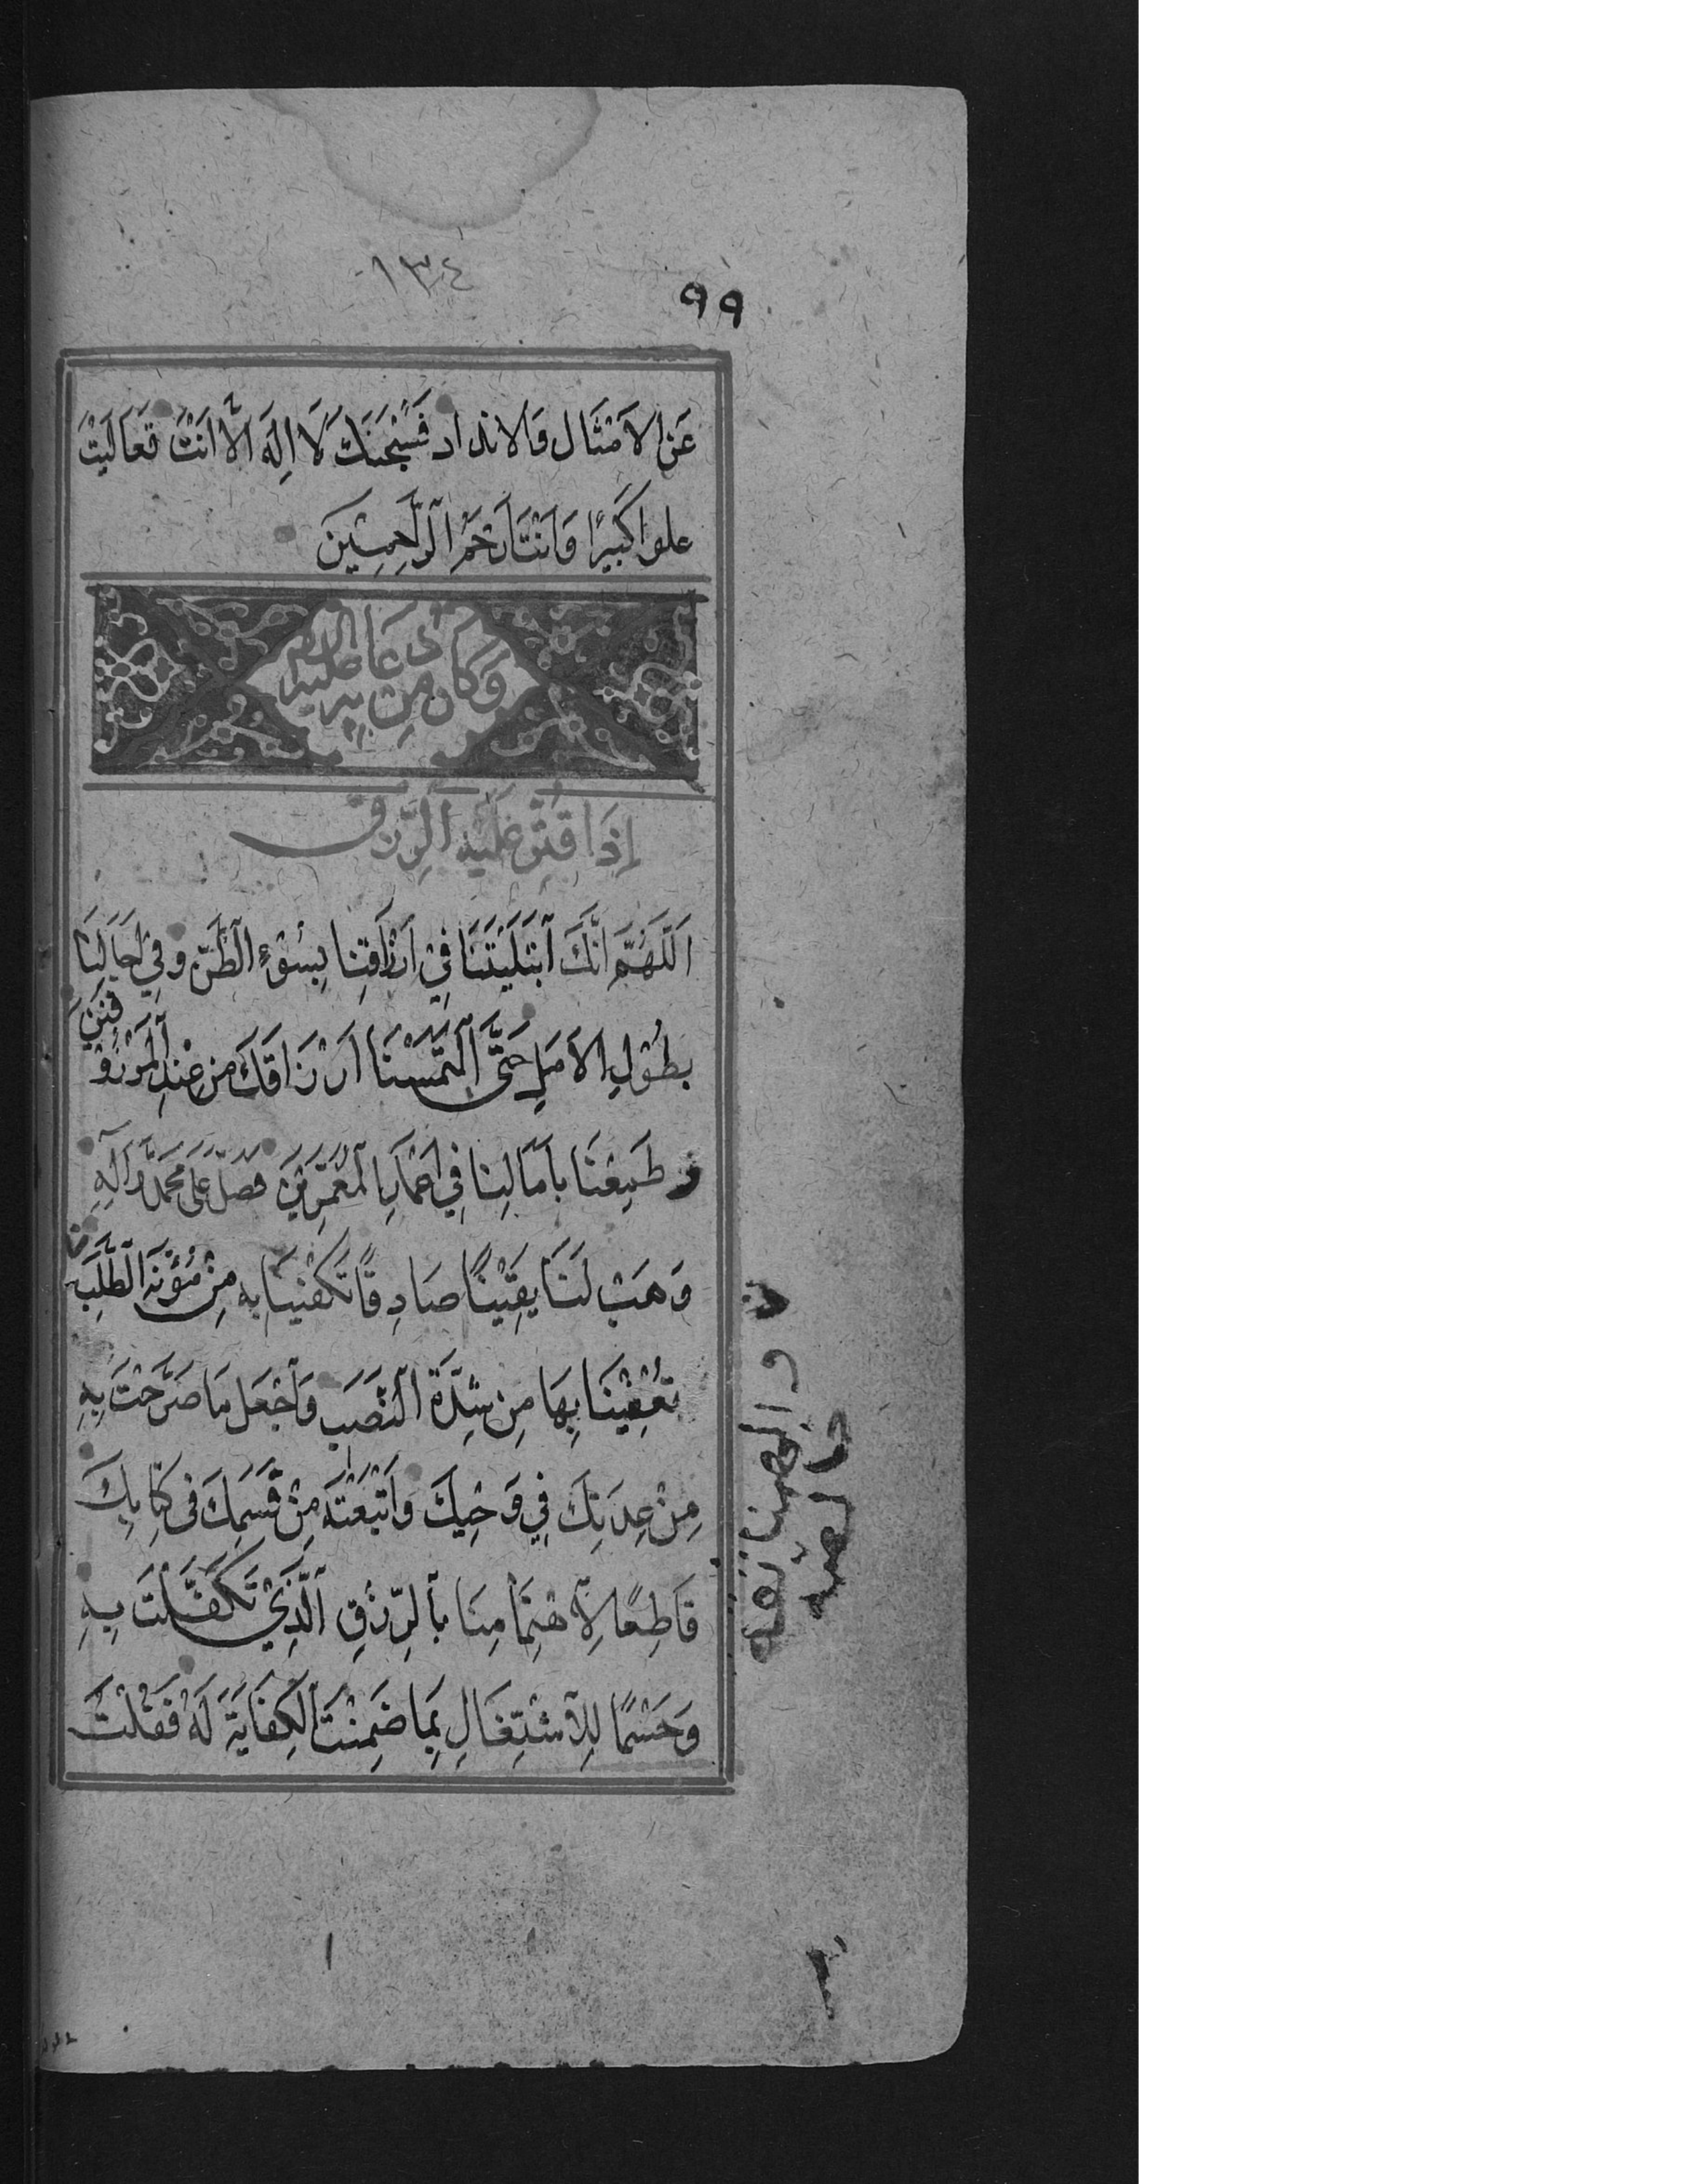 ١٣٤
٩٩
عَنِ الاَمْثَال وَالانداد فَسُبْحٰنَكَ لَا اِلٰهَ اِلَّا اَنْتَ تَعَالَيْتَ
علوا كَبِيرًا وَاَنْتَ اَرْحَمُ الرّٰحِمِينَ
وَكَان مِنْ دُعَائِهِ عليه السلام
اِذَا قُتِّرَ عَلَيْهِ الرِّزق
اَللّٰهُمَّ اِنَّكَ ابْتَلَيْتَنَا فِي اَرْزَاقِنَا بِسُوْءِ الظَّنِّ وفِي اٰجَالِنَا
بِطُوْلِ الاَمَلِ حَتَّى الْتَمَسْنَا اَرْزَاقَكَ مِن عِنْدِ الْمَرْزُوقِيْنَ
وَ طَمِعْنَا بِاٰمَالِنا فِي اَعْمَارِ الْمُعَمَّرِيْنَ فَصَلِّ عَلَى مُحَمَّدٍ وَاٰلِهِ
وَهَبْ لَنَا يَقِيْنًا صَادِقًا تَكْفِيْنَا بِهِ مِنْ مَؤُنَةِ الطَّلَبِ
تُعْفِيْنَا بِهَا مِن شِدَّةِ النَّصَبِ وَاجْعَل مَا صَرَّحْتَ بِهِ
مِنْ عِدَتِكَ فِي وَحْيِكَ وَاَتْبَعْتَهُ مِنْ قَسَمِكَ فِى كِتَابِكَ
قَاطِعًا لِاهْتِمَامِنَا بِالرِّزْقِ الَّذِيْ تَكَفَّلْتَ بِهِ
وَحَسْمًا لِلاشْتِغَالِ بِمَا ضَمِنْتَ الْكِفَايَةَ لَهُ فَقُلْتَ